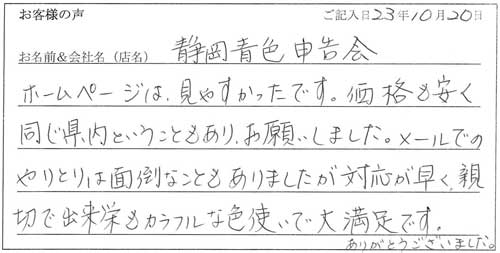 お客様の声 ご記入日23年10月20日
お名前&会社名（店名） 静岡青色申告会
ホームページは、見やすかったです。価格も安く
同じ県内ということもあり、お願いしました。メールでの
やりとりは面倒なこともありましたが対応が早く、親
切で出来栄もカラフルな色使いで大満足です。
ありがとうございました。